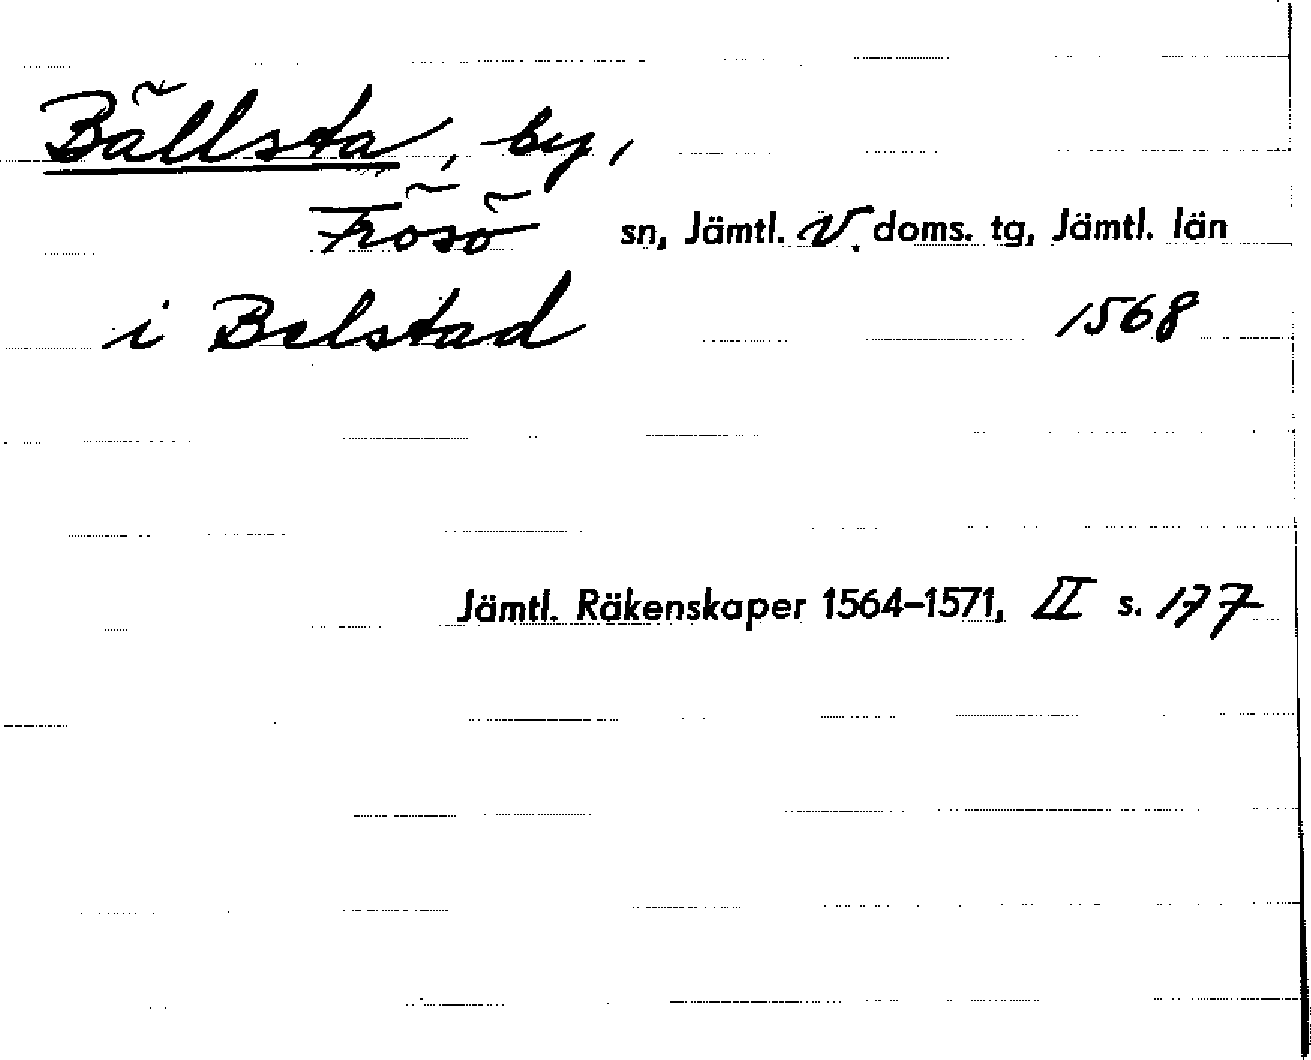 Bällsta, by,
Frösö sn, Jämtl. V. doms. tg, Jämtl. län
i Belstad 1568
Jämtl. Räkenskaper 1564–1571, II s. 177